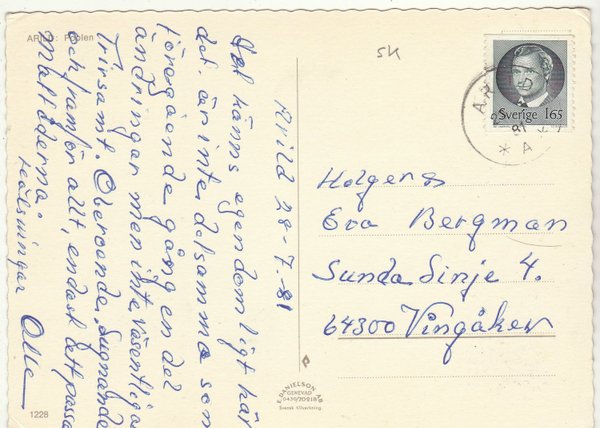 ARILD: Poolen
SK
Sverige 165
81
* A
Arild 28-7-81
Det känns egendomligt här
det är inte detsamma som
föregående gång en del
ändringar men inte väsentliga
Trivsamt. Oberoende.
och framför allt, endast lätt
måltiderna.
Hälsningar Olle
Holger o
Eva Bergman
Sunda Linje 4.
64300 Vingåker
E. DANIELSON AB
GENEVAD
0430/70218
Svensk tillverkning
1228